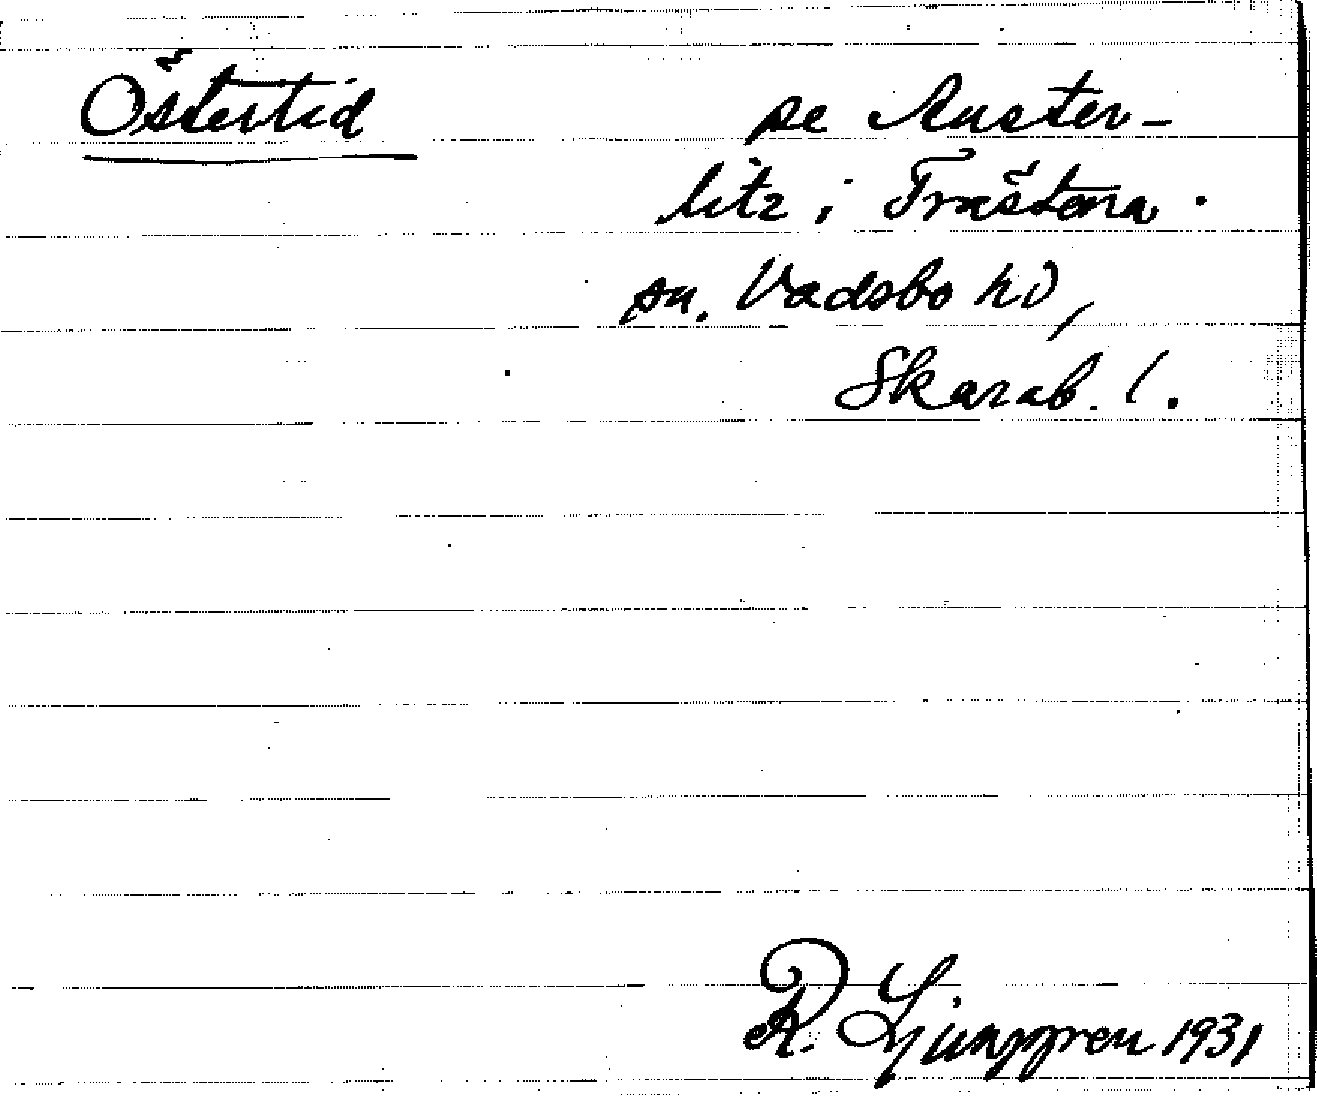 Östertid
se Auster-
litz i Trästena.
sn. Vadsbo hd,
Skarab. l.
R. Ljunggren 1931